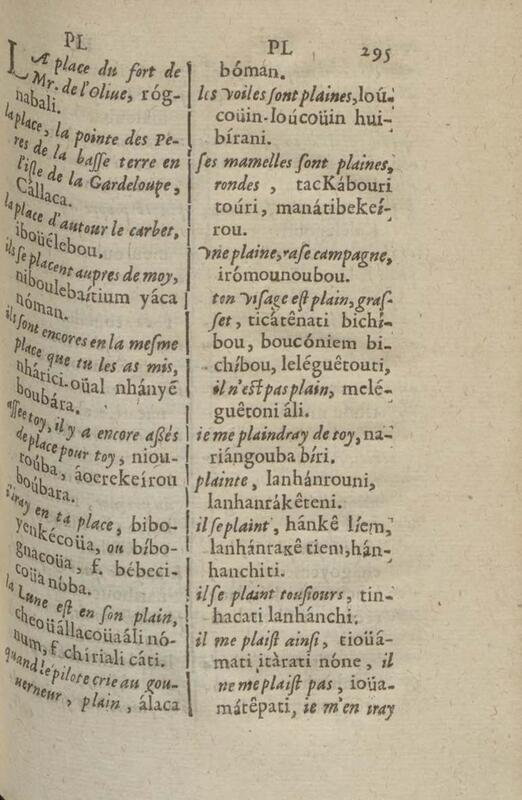 PL
LA place du fort de
Mr. de l'Oliue, róg-
nabali.
la place, la pointe des Pe-
res de la basse terre en
l'isle de la Gardeloupe,
Cállaca.
la place d'autour le carbet,
iboüélebou.
ils se placent aupres de moy,
niboulebaítium yáca
nóman.
ils sont encores en la mesme
place que tu les as mis,
nhárici-oüal nhányẽ
boubára.
assee toy, il y a encore assés
de place pour toy, niou-
roúba, áoerekeírou
boúbara.
i'iray en ta place, bibo-
yenkécoüa, ou bíbo-
gnacoüa, f. bébeci-
coüa nóba.
la Lune est en son plain,
cheoüállacoüaáli nó-
num, f. chíriali cáti.
quand le pilote crie au gou-
uerneur, plain, álaca
PL 295
bómán.
les voiles sont plaines, loú-
coüin-loúcoüin hui-
bírani.
ses mamelles sont plaines,
rondes, tacKábouri
toúri, manátibekeí-
rou.
vne plaine, rase campagne,
irómounoubou.
ton visage est plain, gras-
set, ticátênati bichí-
bou, boucóniem bi-
chíbou, leléguêtouti,
il n'est pas plain, melé-
guêtoni áli.
ie me plaindray de toy, na-
riángouba bíri.
plainte, lanhánrouni,
lanhanrákêteni.
il se plaint, hánkê líem,
lanhánraκê tiem, hán-
hanchiti.
il se plaint tousiours, tin-
hacati lanhánchi.
il me plaist ainsi, tioüá-
mati itàrati nóne, il
ne me plaist pas, ioüa-
mátêpati, ie m'en iray